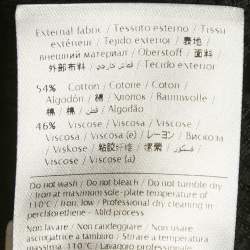 External fabric / Tessuto esterno / Tissu
extérieur / Tejido exterior / 表地 /
внешний материал / Oberstoff / 面料
外部布料 / قماش خارجي / Tecido exterior
54% Cotton / Cotone / Coton /
Algodón / 棉 / Хлопок / Baumwolle /
棉 / 棉 / قطن / Algodão
46% Viscose / Viscosa / Viscose /
Viscosa / Viscosa (e) / レーヨン / Вискоза
/ Viskose / 粘胶纤维 / 嫘縈 /
Viscose / Viscose (a)
Do not wash / Do not bleach / Do not tumble dry
Iron at maximum sole-plate temperature of
110°C / Iron, low / Professional dry cleaning in
perchloroethene - Mild process
Non lavare / Non candeggiare / Non usare
asciugatrice a tamburo / Stirare a temperatura
massima 110°C / Lavaggio professionale